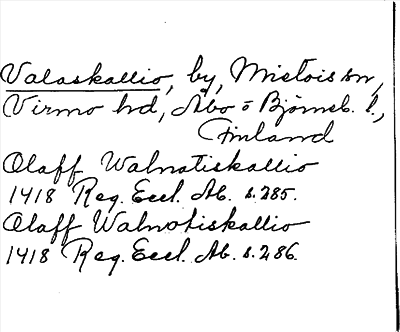 Valaskallio, by, Mietois sn,
Virmo hd, Åbo o Björneb. l.,
Finland
Olaff Walnatiskallio
1418 Reg. Eccl. Ab. s. 285.
Olaff Walnotiskallio
1418 Reg. Eccl. Ab. s. 286.